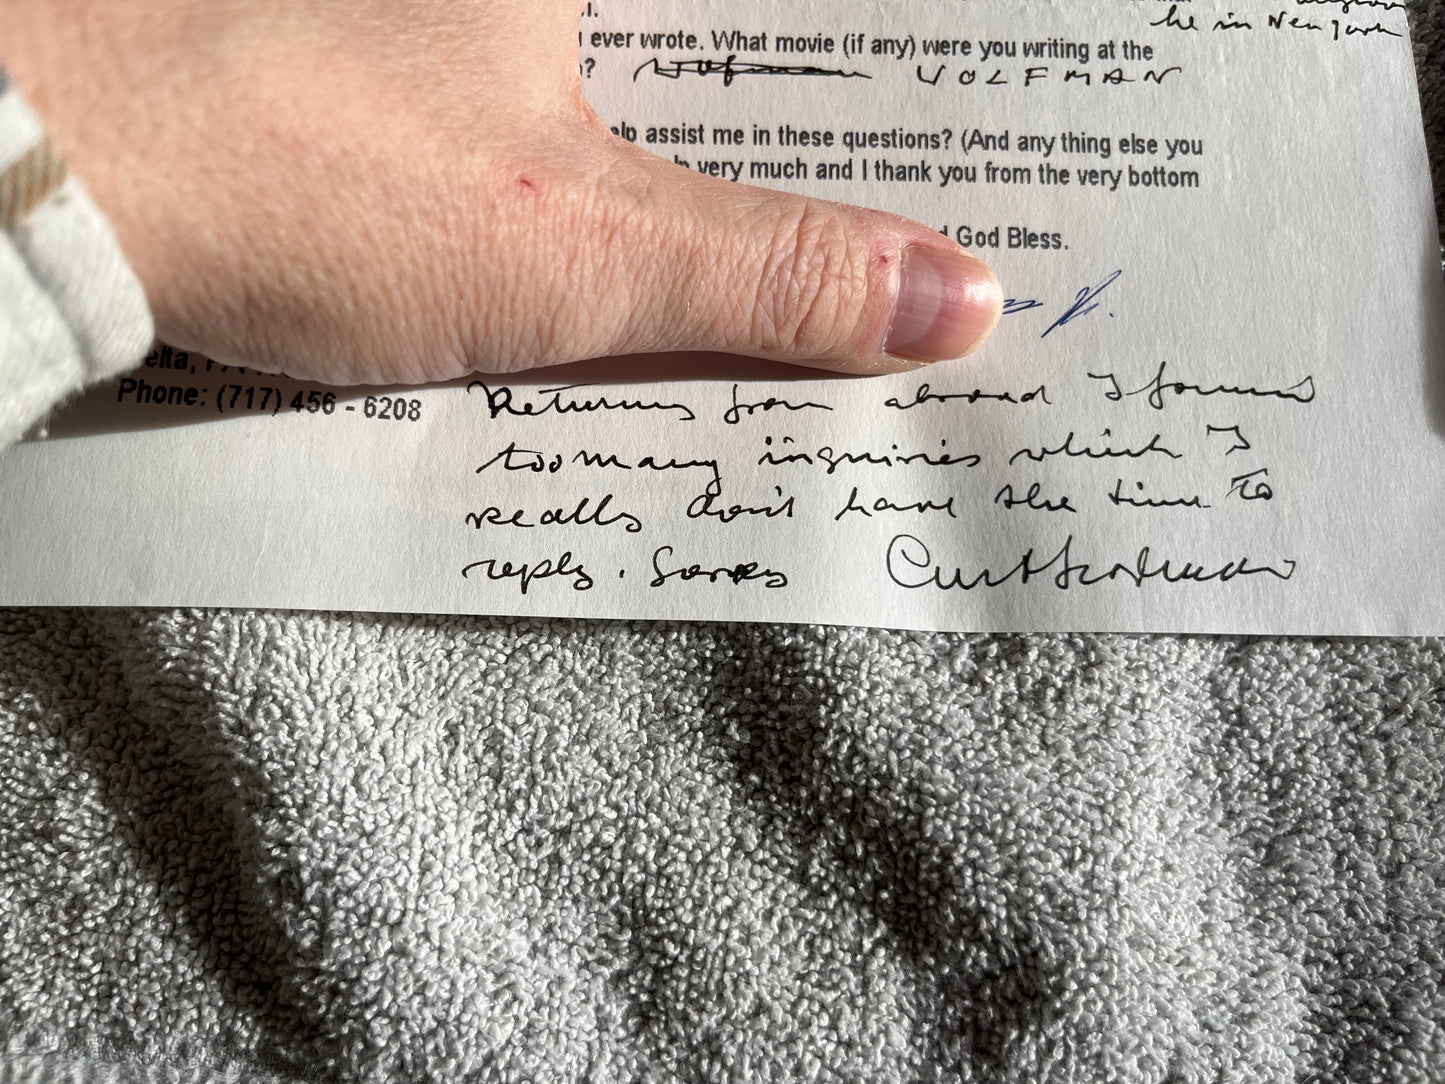 he in New York
ever wrote. What movie (if any) were you writing at the
? Wolfman WOLFMAN
elp assist me in these questions? (And any thing else you
very much and I thank you from the very bottom
God Bless.
elta, PA
Phone: (717) 456 - 6208
Returning from abroad I found
too many inquiries which I
really don't have the time to
reply. Sorry Curt Siodmak